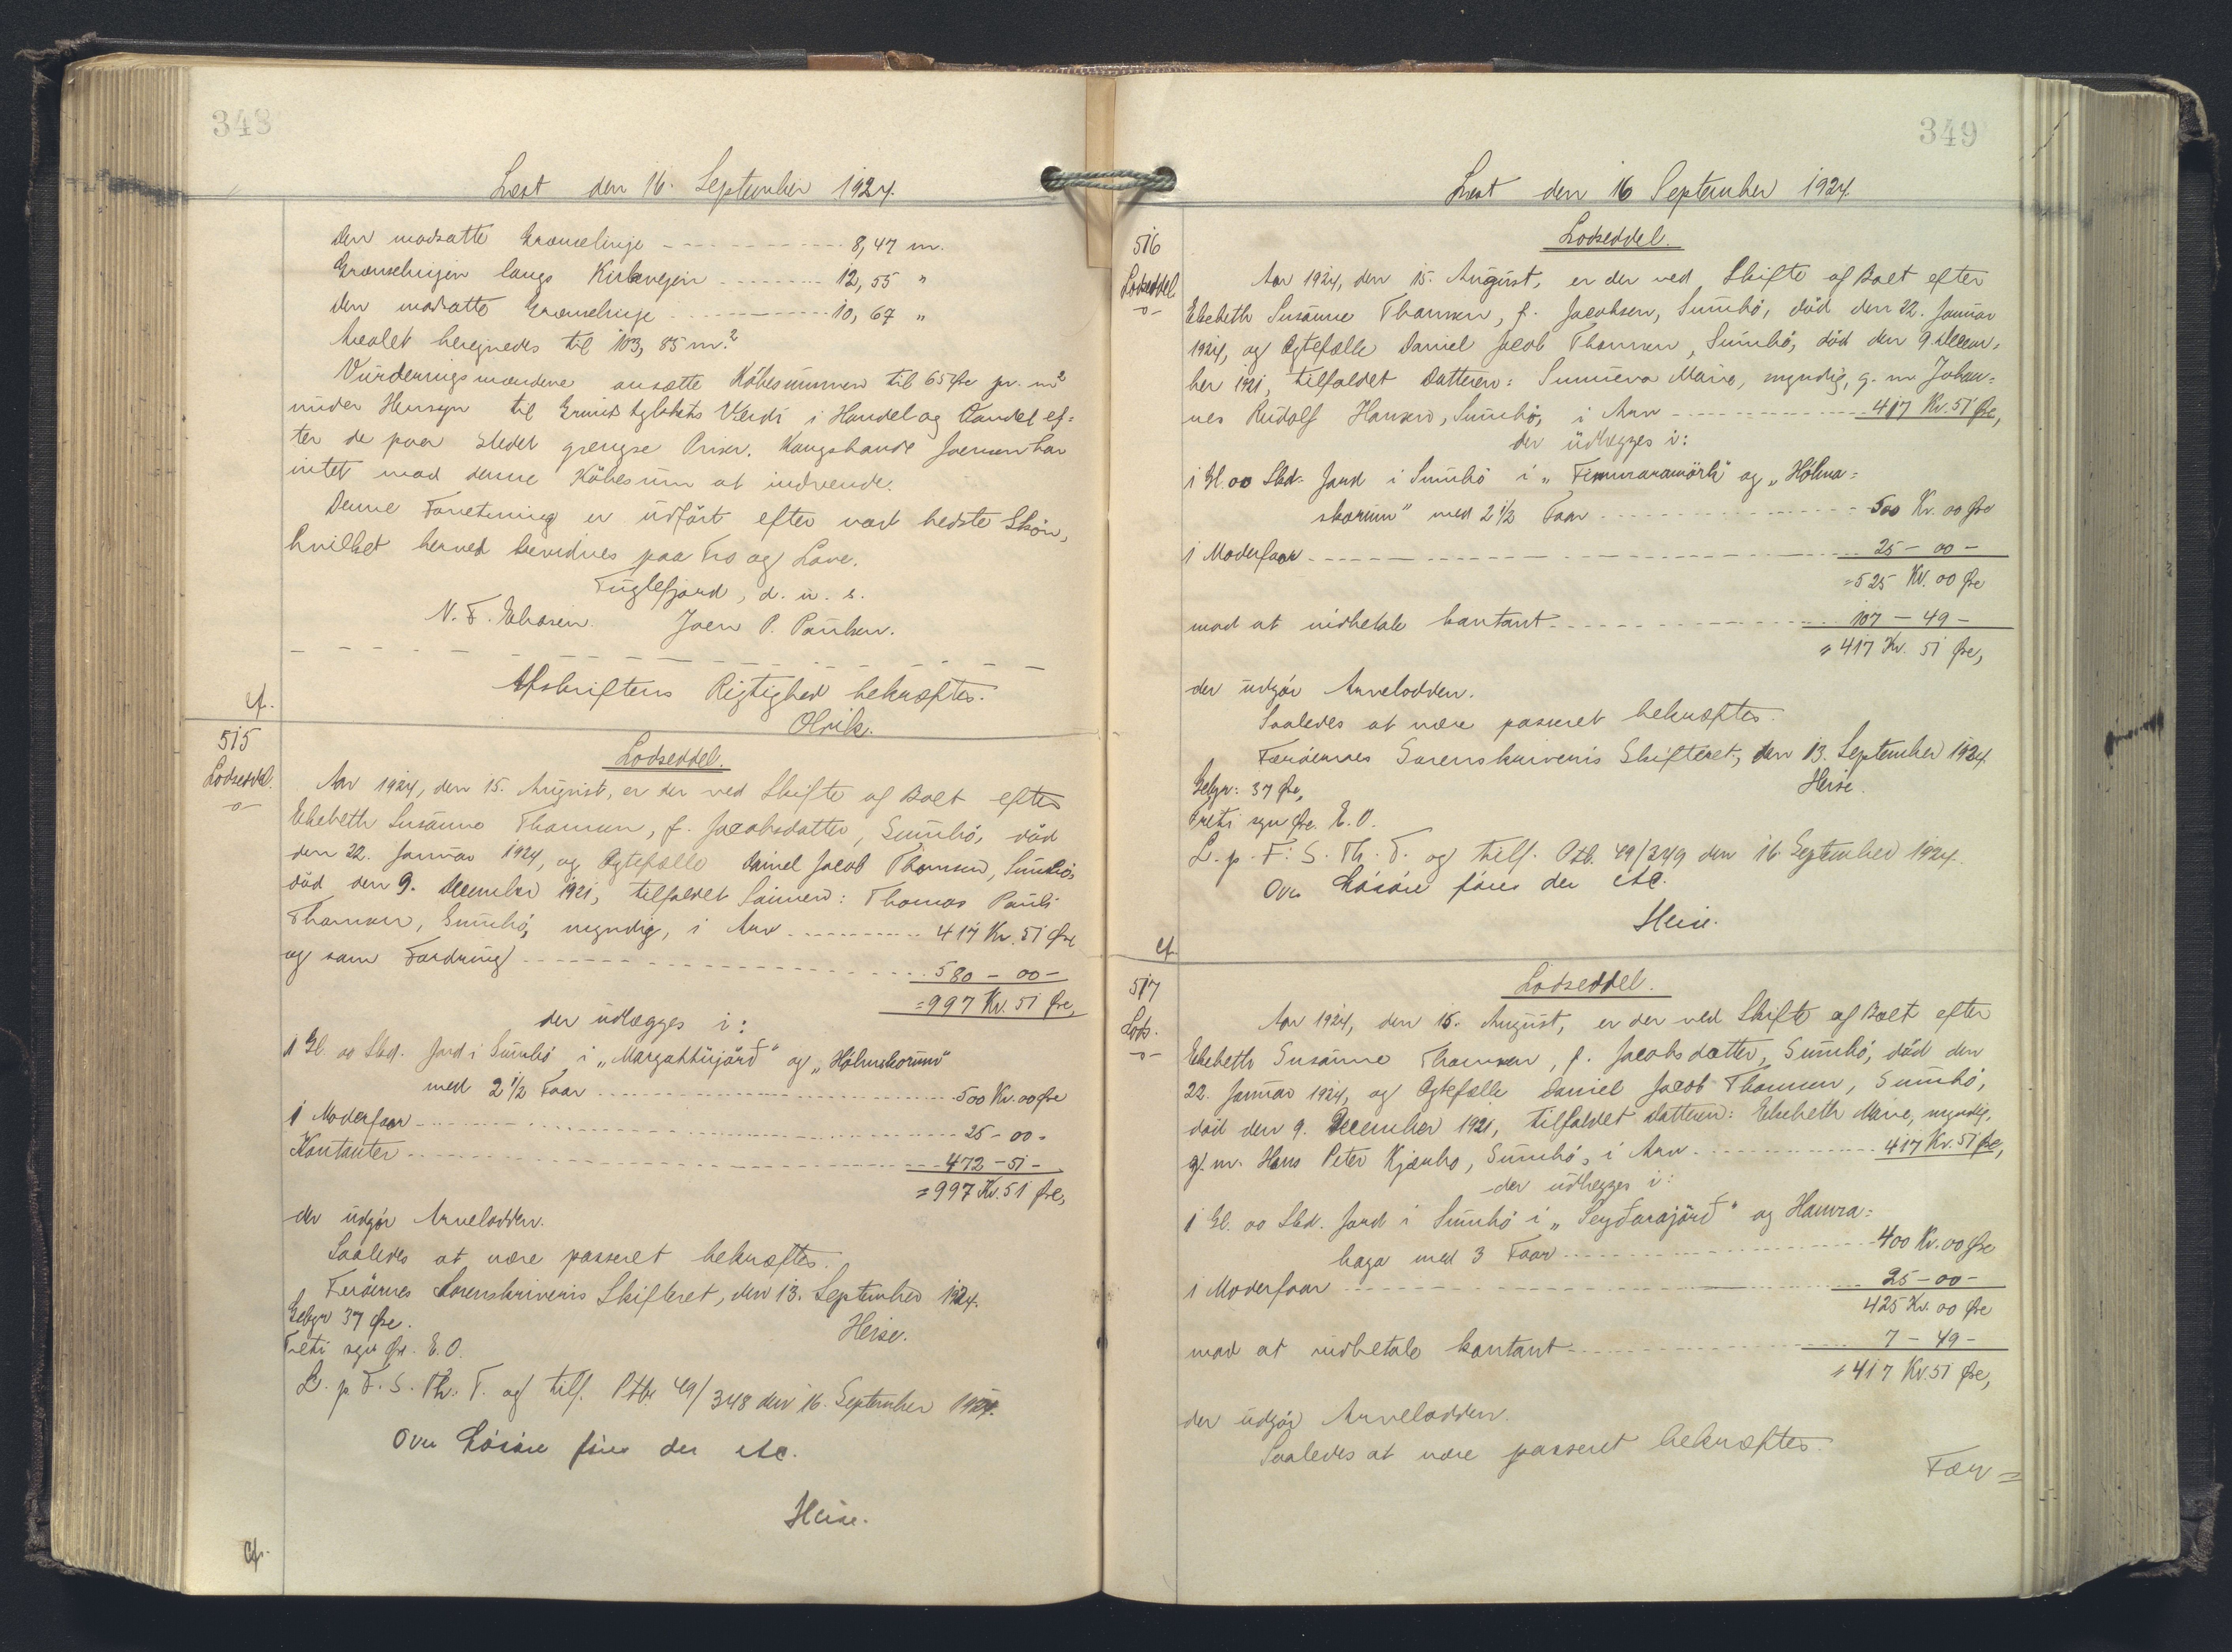 348
Læst den 16. September 1924.
den modsatte Grænselinje 8,47 m.
Grænselinjen langs Kirkevejen 12,55 "
den modsatte Grænselinje 10,67 "
Arealet beregnedes til 103,85 m.²
Vurderingsmændene ansætte Købesummen til 65 Øre pr. m²
under Hensyn til Grundstykkets Værdi i Handel og Vandel ef=
ter de paa Stedet gængse Priser. Kongsbonde Joensen har
intet mod denne Købesum at indvende.
Denne Forretning er udført efter vort bedste Skøn,
hvilket herved bevidnes paa Tro og Love.
Fuglefjord, d. u. s.
N. F. Eliasen. Joen P. Poulsen.
Afskriftens Rigtighed bekræftes.
Olrik.
cf.
515
Lodseddel.
Lodseddel.
Aar 1924, den 15. August, er der ved Skifte af Boet efter
Elsebeth Susanne Thomsen, f. Jacobsdatter, Sumbø, död
den 22. Januar 1924, og Ægtefælle Daniel Jacob Thomsen, Sumbø,
död den 9. December 1921, tilfaldet Sönnen: Thomas Pauli
Thomsen, Sumbø, myndig, i Arv 417 Kr. 51 Øre
og som Fordring 580 - 00 -
= 997 Kr. 51 Øre,
der udlægges i:
1 Gl. 00 Skd. Jord i Sumbø i „Marguttujørð" og „Hólmskorum"
med 2 1/2 Faar 500 Kr. 00 Øre
1 Moderfaar 25 - 00 -
Kontanter 472 - 51 -
= 997 Kr. 51 Øre,
der udgør Arvelodden.
Saaledes at være passeret bekræftes.
Færöernes Sorenskriveris Skifteret, den 13. September 1924.
Gebyr 37 Øre. Heise.
Treti syv Øre. E.O.
L. p. F. S. Th. T. og tilf. Ptb. 49/348 den 16. September 1924.
Over Lösöre föres der etc.
Heise.
cf.
349
Læst den 16 September 1924.
516
Lodseddel
Lodseddel.
Aar 1924, den 15. August, er der ved Skifte af Boet efter
Elsebeth Susanne Thomsen, f. Jacobsen, Sumbø, död den 22. Januar
1924, og Ægtefælle Daniel Jacob Thomsen, Sumbø, död den 9. Decem=
ber 1921, tilfaldet Datteren: Sunneva Marie, myndig, g. m. Johan=
nes Rudolf Hansen, Sumbø, i Arv 417 Kr. 51 Øre,
der udlægges i:
1 Gl. 00 Skd. Jord i Sumbø i „ og „Hólma=
skorum" med 2 1/2 Faar 500 Kr. 00 Øre
1 Moderfaar 25 - 00 -
= 525 Kr. 00 Øre
mod at indbetale kontant 107 - 49 -
= 417 Kr. 51 Øre,
der udgör Arvelodden.
Saaledes at være passeret bekræftes.
Færöernes Sorenskriveris Skifteret, den 13. September 1924.
Gebyr: 37 Øre, Heise.
Treti syv Øre. E.O.
L. p. F. S. Th. T. og tilf. Ptb. 49/349 den 16. September 1924.
Over Lösöre föres der etc.
Heise.
cf.
517
Lods.
Lodseddel.
Aar 1924, den 15. August, er der ved Skifte af Boet efter
Elsebeth Susanne Thomsen, f. Jacobsdatter, Sumbø, död den
22. Januar 1924, og Ægtefælle Daniel Jacob Thomsen, Sumbø,
död den 9. December 1921, tilfaldet Datteren: Elsebeth Marie, myndig,
g. m. Hans Peter Kjærbo, Sumbø, i Arv 417 Kr. 51 Øre,
der udlægges i:
1 Gl. 00 Skd. Jord i Sumbø i „ og Hamra=
haga med 3 Faar 400 Kr. 00 Øre
1 Moderfaar 25 - 00 -
425 Kr. 00 Øre
mod at indbetale kontant 7 - 49 -
= 417 Kr. 51 Øre,
der udgör Arvelodden.
Saaledes at være passeret bekræftes.
Fær=